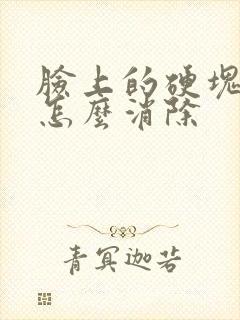 臉上的硬塊
怎麼消除
青冥迦若